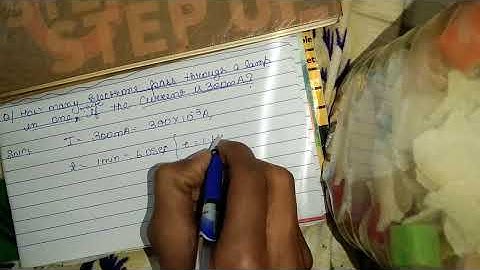 STEP U
Q) How many electrons pass through a lamp
in one minute if the current is 300mA?
Soln:
I = 300mA = 300×10⁻³A,
t = 1min = 60sec { t = 1